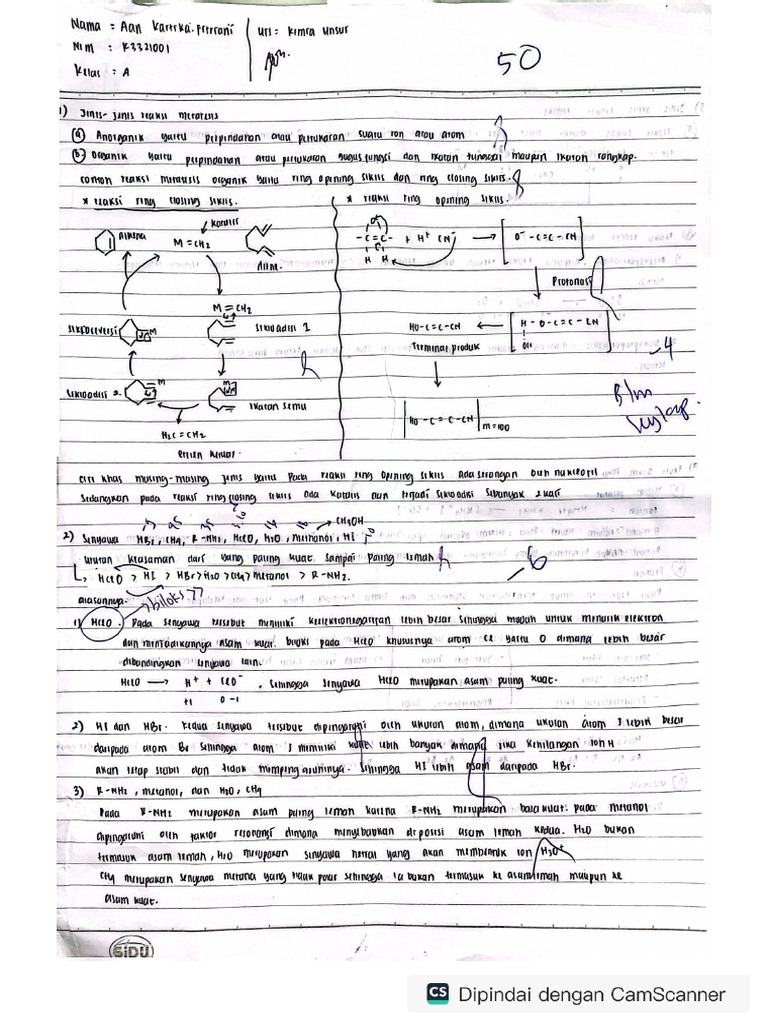 Nama : Aan Kartika Fitriani
Nim : K3321001
Kelas : A
UTS : Kimia Unsur
50
1) Jenis-jenis reaksi metatesis
(a) Anorganik yaitu perpindahan atau pertukaran suatu ion atau atom
(b) Organik yaitu perpindahan atau pertukaran gugus fungsi dan ikatan tunggal maupun ikatan rangkap.
contoh reaksi metatesis organik yaitu ring opening siklis dan ring closing siklis.
* reaksi ring closing siklis.
* reaksi ring opening siklis.
katalis
Alkena
M=CH2
Diena.
M=CH2
Sikloadisi 1
Sikloreversi
M
Sikloadisi 2.
M
M
Ikatan semu
H2C=CH2
-C=C- + H+ CN-
H H
O- -C=C-CN
Protonasi
H-O-C=C-CN
HO-C=C-CN
Terminasi produk
HO-C=C-CN m=100
-4
Blm
lengkap.
ciri khas masing-masing jenis yaitu pada reaksi ring opening siklis ada serangan oleh nukleofil
sedangkan pada reaksi ring closing siklis ada katalis dan terjadi sikloadisi sebanyak 2 kali
CH3OH
2) Senyawa HBr, CH4, R-NH2, HClO, H2O, metanol, HI
urutan keasaman dari yang paling kuat sampai paling lemah
HClO > HI > HBr > H2O > CH4 > metanol > R-NH2.
-6
alasannya.
biloks ??
1) HClO. Pada senyawa tersebut memiliki keelektronegatifan lebih besar sehingga mudah untuk menarik elektron
dan menjadikannya asam kuat. bukti pada HClO khususnya atom Cl yaitu 0 dimana lebih besar
dibandingkan senyawa lain.
HClO → H+ + ClO-. Sehingga senyawa HClO merupakan asam paling kuat.
+1 0 -1
2) HI dan HBr. Kedua senyawa tersebut dipengaruhi oleh ukuran atom, dimana ukuran atom I lebih besar
daripada atom Br sehingga atom I memiliki lebih banyak dimana jika kehilangan ion H
akan tetap stabil dan tidak mempengaruhinya. Sehingga HI lebih asam daripada HBr.
3) R-NH2, metanol, dan H2O, CH4
Pada R-NH2 merupakan asam paling lemah karena R-NH2 merupakan basa kuat. pada metanol
dipengaruhi oleh faktor resonansi dimana menyebabkan di posisi asam lemah kedua. H2O bukan
termasuk asam lemah, H2O merupakan senyawa netral yang akan membentuk ion H3O+
CH4 merupakan senyawa metana yang tidak polar sehingga ia bukan termasuk ke asam lemah maupun ke
asam kuat.
SIDU
CS Dipindai dengan CamScanner